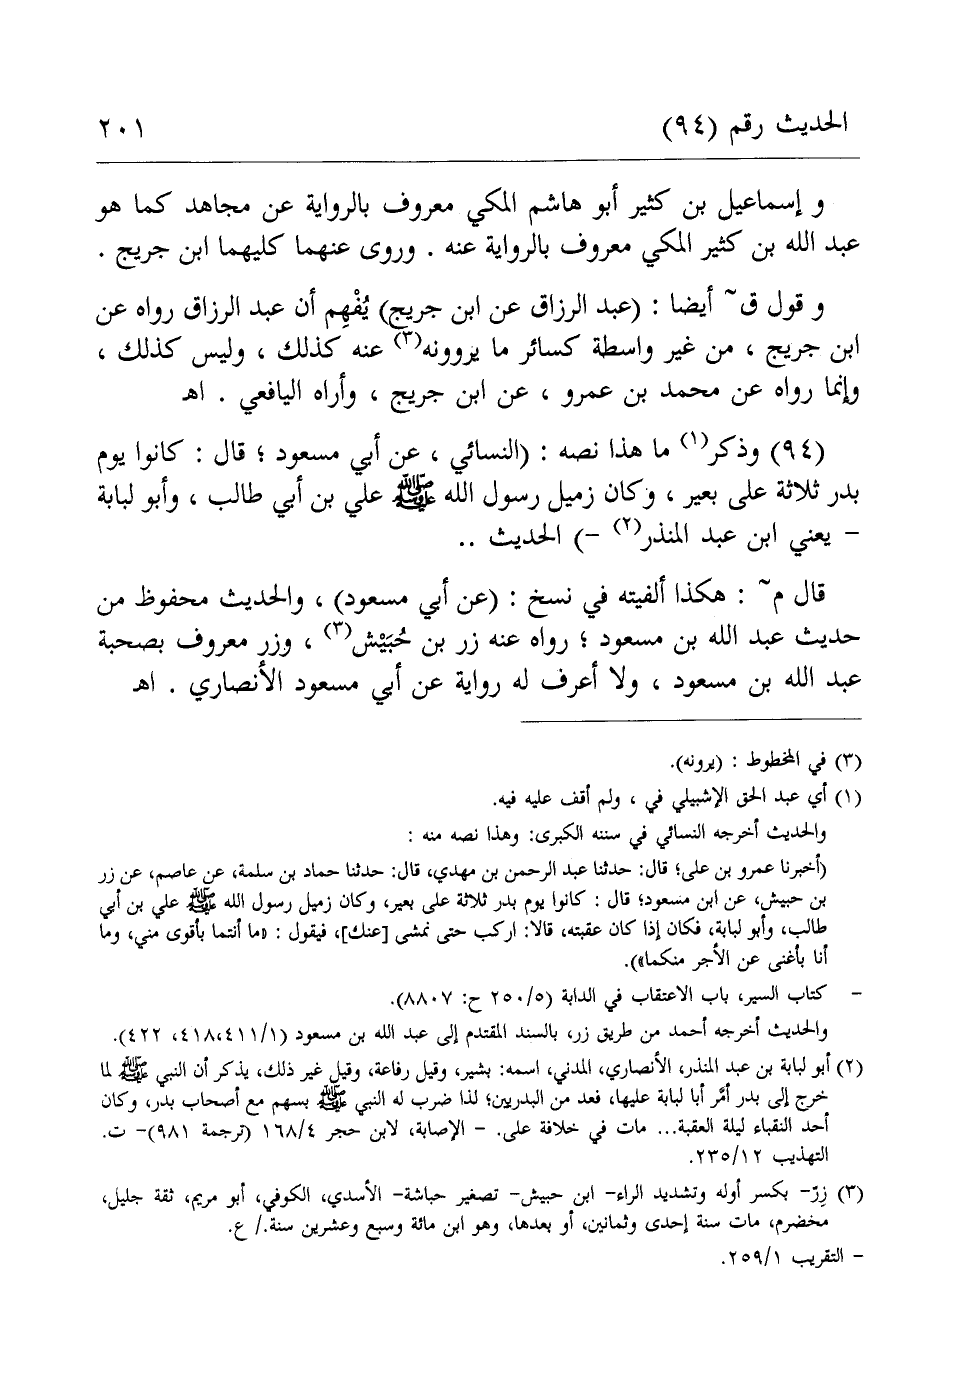 الحديث رقم (٩٤)
٢٠١
و إسماعيل بن كثير أبو هاشم المكي معروف بالرواية عن مجاهد كما هو
عبد الله بن كثير المكي معروف بالرواية عنه . وروى عنهما كليهما ابن جريج .
و قول ق~ أيضا : (عبد الرزاق عن ابن جريج) يُفْهِم أن عبد الرزاق رواه عن
ابن جريج ، من غير واسطة كسائر ما يروونه(٣) عنه كذلك ، وليس كذلك ،
وإنما رواه عن محمد بن عمرو ، عن ابن جريج ، وأراه اليافعي . اهـ
(٩٤) وذكر(١) ما هذا نصه : (النسائي ، عن أبي مسعود ؛ قال : كانوا يوم
بدر ثلاثة على بعير ، وكان زميل رسول الله ﷺ علي بن أبي طالب ، وأبو لبابة
- يعني ابن عبد المنذر(٢) -) الحديث ..
قال م~ : هكذا ألفيته في نسخ : (عن أبي مسعود) ، والحديث محفوظ من
حديث عبد الله بن مسعود ؛ رواه عنه زر بن حُبَيْش(٣) ، وزر معروف بصحبة
عبد الله بن مسعود ، ولا أعرف له رواية عن أبي مسعود الأنصاري . اهـ
(٣) في المخطوط : (يرونه).
(١) أي عبد الحق الإشبيلي في ، ولم أقف عليه فيه.
والحديث أخرجه النسائي في سننه الكبرى: وهذا نصه منه :
(أخبرنا عمرو بن على؛ قال: حدثنا عبد الرحمن بن مهدي، قال: حدثنا حماد بن سلمة، عن عاصم، عن زر
بن حبيش، عن ابن مسعود؛ قال : كانوا يوم بدر ثلاثة على بعير، وكان زميل رسول الله ﷺ علي بن أبي
طالب، وأبو لبابة، فكان إذا كان عقبته، قالا: اركب حتى نمشى [عنك]، فيقول : «ما أنتما بأقوى مني، وما
أنا بأغنى عن الأجر منكما»).
- كتاب السير، باب الاعتقاب في الدابة (٢٥٠/٥ ح: ٨٨٠٧).
والحديث أخرجه أحمد من طريق زر، بالسند المقتدم إلى عبد الله بن مسعود (٤١١/١،٤١٨، ٤٢٢).
(٢) أبو لبابة بن عبد المنذر، الأنصاري، المدني، اسمه: بشير، وقيل رفاعة، وقيل غير ذلك، يذكر أن النبي ﷺ لما
خرج إلى بدر أمَّر أبا لبابة عليها، فعد من البدريين؛ لذا ضرب له النبي ﷺ بسهم مع أصحاب بدر، وكان
أحد النقباء ليلة العقبة... مات في خلافة على. - الإصابة، لابن حجر ١٦٨/٤ (ترجمة ٩٨١)- ت.
التهذيب ٢٣٥/١٢.
(٣) زِرّ- بكسر أوله وتشديد الراء- ابن حبيش- تصغير حباشة- الأسدي، الكوفي، أبو مريم، ثقة جليل،
مخضرم، مات سنة إحدى وثمانين، أو بعدها، وهو ابن مائة وسبع وعشرين سنة./ ع.
- التقريب ٢٥٩/١.